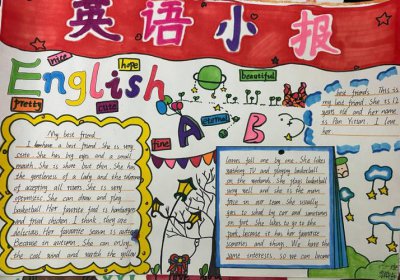 英语小报
nice
hope
beautiful
English
pretty
cute
eternal
fine
A
B
My best friend
I have a best friend. She is very
cute. She has big eyes and a small
mouth. She is short but thin. She has
the gentleness of a lady and the
of accepting all rivers. She is very
optimistic. She can draw and play
basketball. Her favorite food is hamburgers
and fried chicken. I think they are
delicious. Her favorite season is autumn
Because in autumn. She can enjoy
the cool wind and watch the yellow
leaves fall one by one. She likes
watching TV and playing basketball
on the weekends. She plays basketball
very well and she is the main
force in our team. She usually
goes to school by car and sometimes
on foot. She likes to go to the
park, because it has her favorite
sceneries and things. We have the
same interests, so we can become
best friends. This is
my best friend. She is 12
years old and her name
is Pan Yixuan. I love
her.